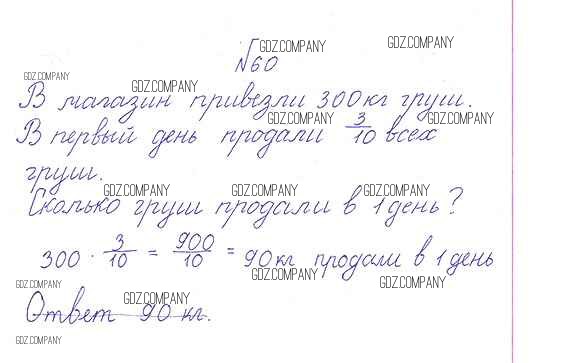 №60
В магазин привезли 300 кг груш.
В первый день продали 3/10 всех
груш.
Сколько груш продали в 1 день?
300 · 3/10 = 900/10 = 90 кг продали в 1 день
Ответ 90 кг.
GDZ.COMPANY
GDZ.COMPANY
GDZ.COMPANY
GDZ.COMPANY
GDZ.COMPANY
GDZ.COMPANY
GDZ.COMPANY
GDZ.COMPANY
GDZ.COMPANY
GDZ.COMPANY
GDZ.COMPANY
GDZ.COMPANY
GDZ.COMPANY
GDZ.COMPANY